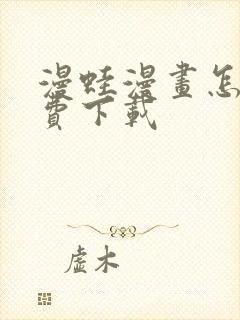 漫蛙漫畫怎
費下載
虛木